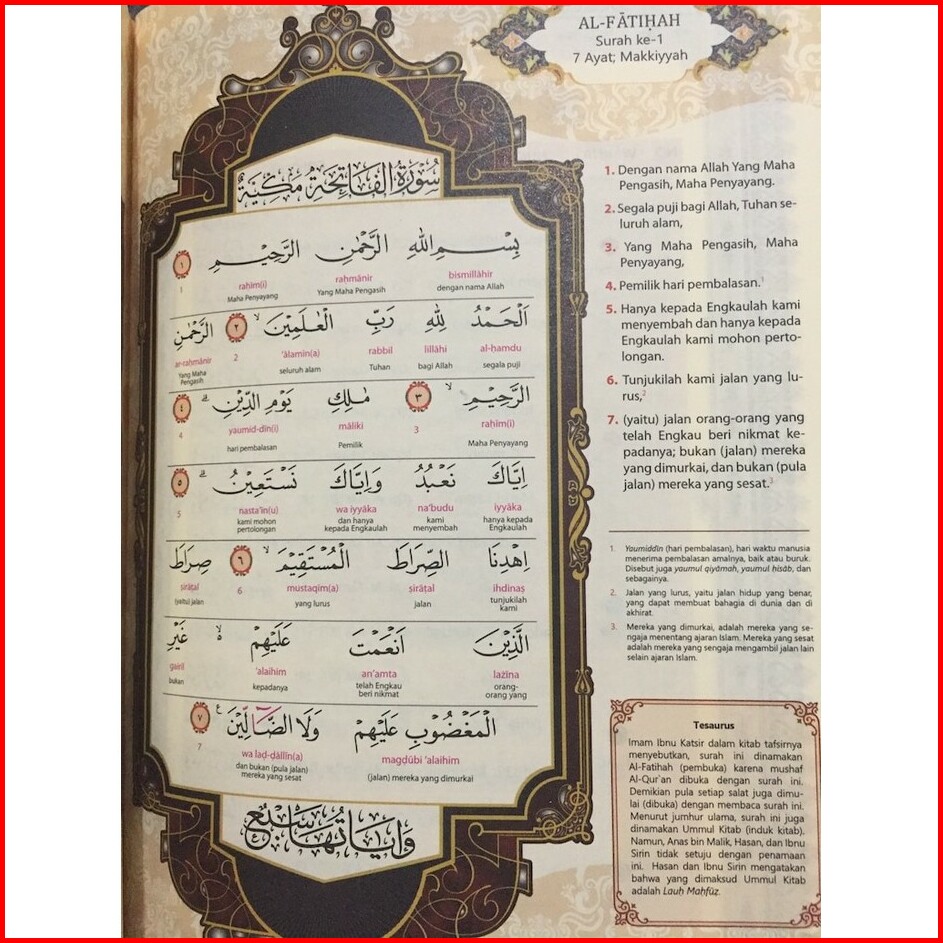 AL-FĀTIḤAH
Surah ke-1
7 Ayat; Makkiyyah
سُوْرَةُ الْفَاتِحَةِ مَكِّيَّةٌ
بِسْمِ اللّٰهِ الرَّحْمٰنِ الرَّحِيْمِ ١
bismillāhir raḥmānir raḥīm(i) 1
dengan nama Allah Yang Maha Pengasih Maha Penyayang
اَلْحَمْدُ لِلّٰهِ رَبِّ الْعٰلَمِيْنَۙ ٢ الرَّحْمٰنِ
al-ḥamdu lillāhi rabbil ‘ālamīn(a) 2 ar-raḥmānir
segala puji bagi Allah Tuhan seluruh alam Yang Maha
Pengasih
الرَّحِيْمِۙ ٣ مٰلِكِ يَوْمِ الدِّيْنِۗ ٤
raḥīm(i) 3 māliki yaumid-dīn(i) 4
Maha Penyayang Pemilik hari pembalasan
اِيَّاكَ نَعْبُدُ وَاِيَّاكَ نَسْتَعِيْنُۗ ٥
iyyāka na‘budu wa iyyāka nasta‘īn(u) 5
hanya kepada kami dan hanya kami mohon
Engkaulah menyembah kepada Engkaulah pertolongan
اِهْدِنَا الصِّرَاطَ الْمُسْتَقِيْمَۙ ٦ صِرَاطَ
ihdinaṣ ṣirāṭal mustaqim(a) 6 ṣirāṭal
tunjukilah jalan yang lurus (yaitu) jalan
kami
الَّذِيْنَ اَنْعَمْتَ عَلَيْهِمْ ەۙ غَيْرِ
lażīna an‘amta ‘alaihim gairil
orang- telah Engkau kepadanya bukan
orang yang beri nikmat
الْمَغْضُوْبِ عَلَيْهِمْ وَلَا الضَّاۤلِّيْنَ ࣖ ٧
magḍūbi ‘alaihim wa laḍ-ḍāllīn(a) 7
(jalan) mereka yang dimurkai dan bukan (pula jalan)
mereka yang sesat
وَاٰيَاتُهَا سَبْعٌ
1. Dengan nama Allah Yang Maha
Pengasih, Maha Penyayang.
2. Segala puji bagi Allah, Tuhan se-
luruh alam,
3. Yang Maha Pengasih, Maha
Penyayang,
4. Pemilik hari pembalasan.¹
5. Hanya kepada Engkaulah kami
menyembah dan hanya kepada
Engkaulah kami mohon perto-
longan.
6. Tunjukilah kami jalan yang lu-
rus,²
7. (yaitu) jalan orang-orang yang
telah Engkau beri nikmat ke-
padanya; bukan (jalan) mereka
yang dimurkai, dan bukan (pula
jalan) mereka yang sesat.³
1. Yaumiddīn (hari pembalasan), hari waktu manusia
menerima pembalasan amalnya, baik atau buruk.
Disebut juga yaumul qiyāmah, yaumul ḥisāb, dan
sebagainya.
2. Jalan yang lurus, yaitu jalan hidup yang benar,
yang dapat membuat bahagia di dunia dan di
akhirat.
3. Mereka yang dimurkai, adalah mereka yang se-
ngaja menentang ajaran Islam. Mereka yang sesat
adalah mereka yang sengaja mengambil jalan lain
selain ajaran Islam.
Tesaurus
Imam Ibnu Katsir dalam kitab tafsirnya
menyebutkan, surah ini dinamakan
Al-Fatihah (pembuka) karena mushaf
Al-Qur`an dibuka dengan surah ini.
Demikian pula setiap salat juga dimu-
lai (dibuka) dengan membaca surah ini.
Menurut jumhur ulama, surah ini juga
dinamakan Ummul Kitab (induk kitab).
Namun, Anas bin Malik, Hasan, dan Ibnu
Sirin tidak setuju dengan penamaan
ini. Hasan dan Ibnu Sirin mengatakan
bahwa yang dimaksud Ummul Kitab
adalah Lauḥ Maḥfūẓ.